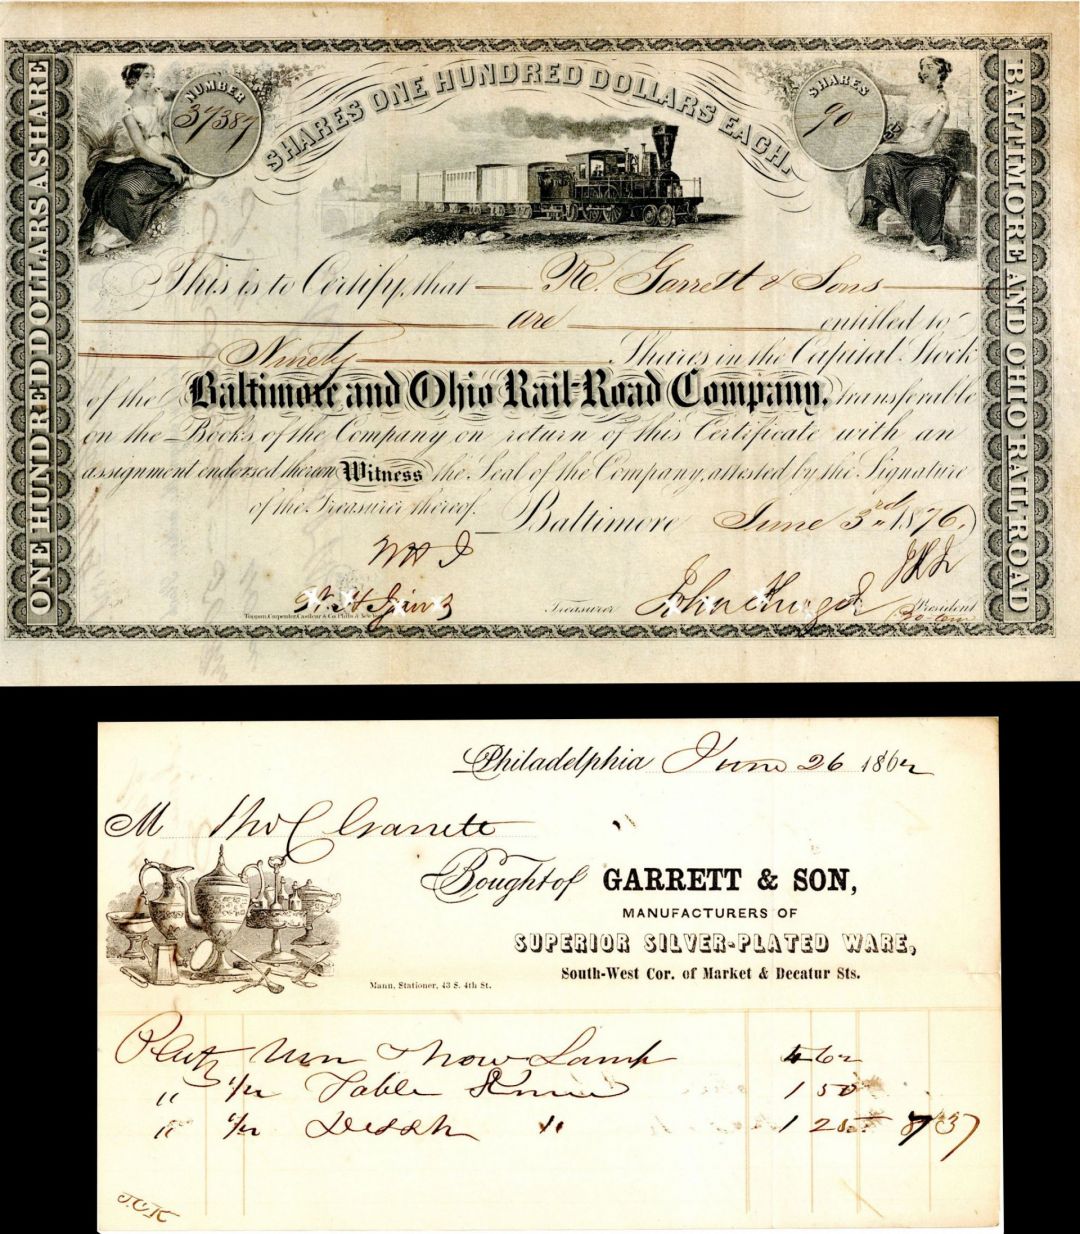 ONE HUNDRED DOLLARS A SHARE
NUMBER
37387
SHARES ONE HUNDRED DOLLARS EACH.
SHARES
90
BALTIMORE AND OHIO RAILROAD
This is to Certify, that Rt. Garrett & Sons
are entitled to
Ninety Shares in the Capital Stock
of the Baltimore and Ohio Rail-Road Company, transferable
on the Books of the Company on return of this Certificate with an
assignment endorsed thereon Witness the Seal of the Company, attested by the Signature
of the Treasurer thereof.
Baltimore June 3rd 1876.
W H I
W. H. Ijams Treasurer John King Jr President
J K Jr
Pro-tem
Toppan, Carpenter, Casilear & Co. Phila. & New York
Philadelphia June 26 1862
M Tho C Garrett
Bought of GARRETT & SON,
MANUFACTURERS OF
SUPERIOR SILVER-PLATED WARE,
South-West Cor. of Market & Decatur Sts.
Mann, Stationer, 43 S. 4th St.
Urn Lamp 4 62
" Table 1 50
" " 1 25 7 37